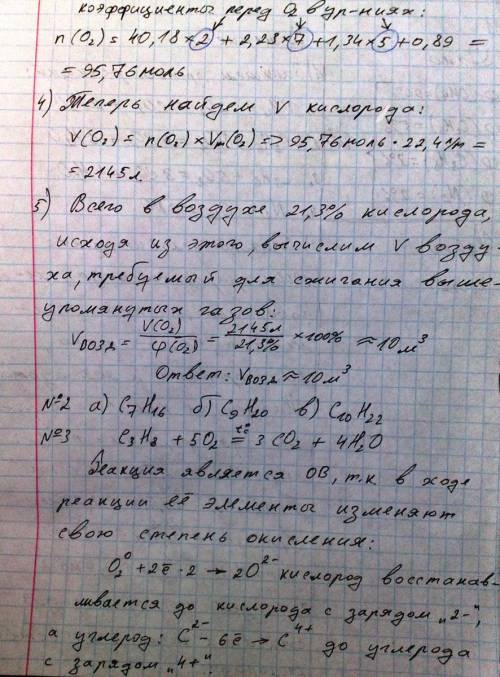 коэффициенты перед O₂ в ур-ниях:
n(O₂) = 40,18×2 + 2,23×7 + 1,34×5 + 0,89 =
= 95,76 моль
4) Теперь найдем V кислорода:
V(O₂) = n(O₂) × Vm(O₂) => 95,76 моль · 22,4 л/м =
= 2145 л.
5) Всего в воздухе 21,3% кислорода,
исходя из этого, вычислим V возду-
ха, требуемый для сжигания выше-
упомянутых газов:
Vвозд = V(O₂)/φ(O₂) = 2145л/21,3% ×100% ≈ 10 м³
Ответ: Vвозд ≈ 10 м³
№2 а) C₇H₁₆ б) C₉H₂₀ в) C₁₀H₂₂
№3 C₃H₈ + 5O₂ =t°= 3CO₂ + 4H₂O
Реакция является ОВ, т.к в ходе
реакции её элементы изменяют
свою степень окисления:
O₂⁰ + 2ē · 2 → 2O²⁻ кислород восстанав-
ливается до кислорода с зарядом „2-“,
а углерод: C²⁻ - 6ē → C⁴⁺ до углерода
с зарядом „4+“.